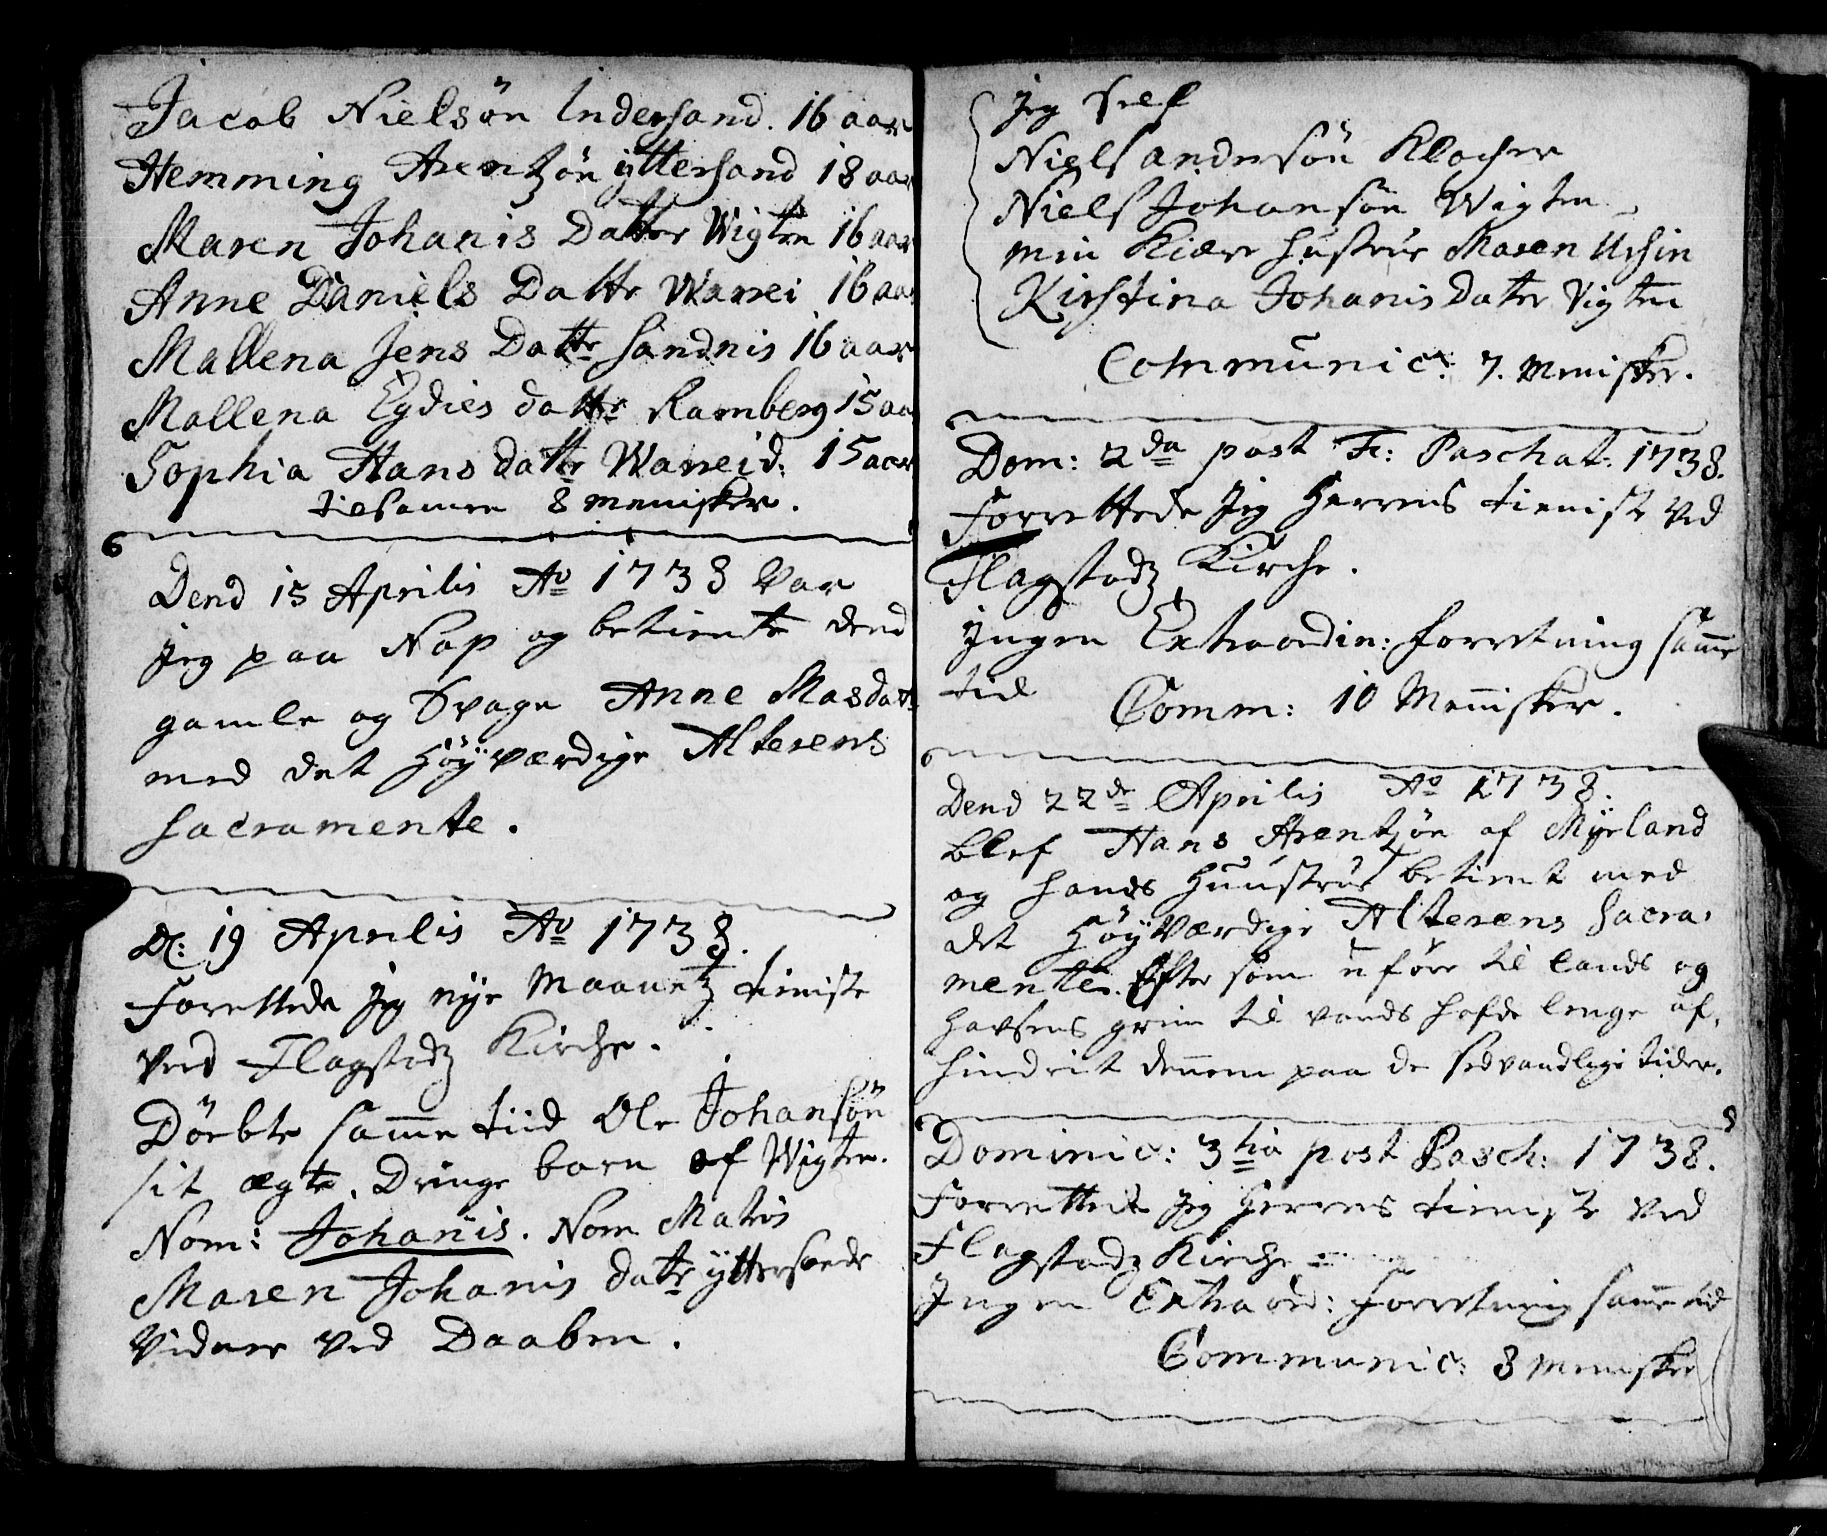 Jacob Nielsön Indersand. 16 aar
Hemming Arentzön yttersand 18 aar
Maren Johanis Datter Wigten 16 aar
Anne Daniels Datter Warrei 16 aar
Mallena Jens Dattr Sandnis 16 aar
Mallena Egdies dattr Ramberg 15 aa
Sophia Hans dattr Warreid: 15 aar
tilsamen 8 menisker.
Dend 15 Aprilis Ao 1738 Var
jeg paa Nap og betiente dend
gamle og Svage Anne Masdatt:
med det Höyværdige Alterens
Sacramente.
D: 19 Aprilis Ao 1738.
Forettede jeg nye Maanetz tieniste
ved Flagstadz Kirche.
Döebte samme tiid Ole Johansön
sit ægte Dringe barn af Wigten.
Nom: Johanis. Nom Matris
Maren Johanis datr ytterscende
Vidner ved Daaben.
jeg self
Niels andersön Klocher
Niels Johansön Wigten
min Kiære hustrue Maren Ursin
Kirstina Johanis Dater Vigten
Communic: 7. Menisker.
Dom: 2da post F: Paschat: 1738.
Forrettede Jeg Herrens tieniste ved
Flagstadz Kirche.
Jngen Extraordin: forretning samme
tid
Comm: 10 Menisker.
Dend 22de Aprilis Ao 1738.
blef Hans Arentzön af Myrland
og hands Huustrue betient med
det Höyværdige Alterens Sacra-
mente. Efter som uföre til lands og
hafsens grim til vands hafde lenge af-
hindrit dennem paa de sedvandlige tider.
Dominic: 3tia post Pasch: 1738.
Forrettede jeg Herrens tieniste ved
Flagstadz Kirche
Jngen Extraord: forretning samme tid
Communic: 8 Menisker